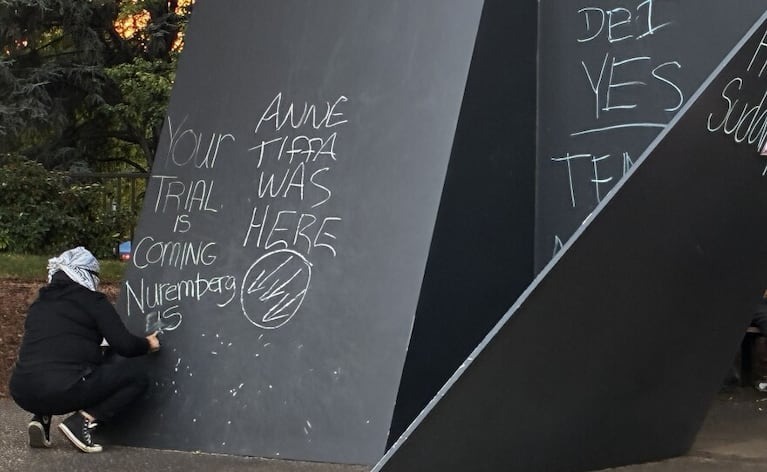 Your
TRIAL
is
COMING
Nuremberg
IS
ANNE
TIFFA
WAS
HERE
DEI
YES